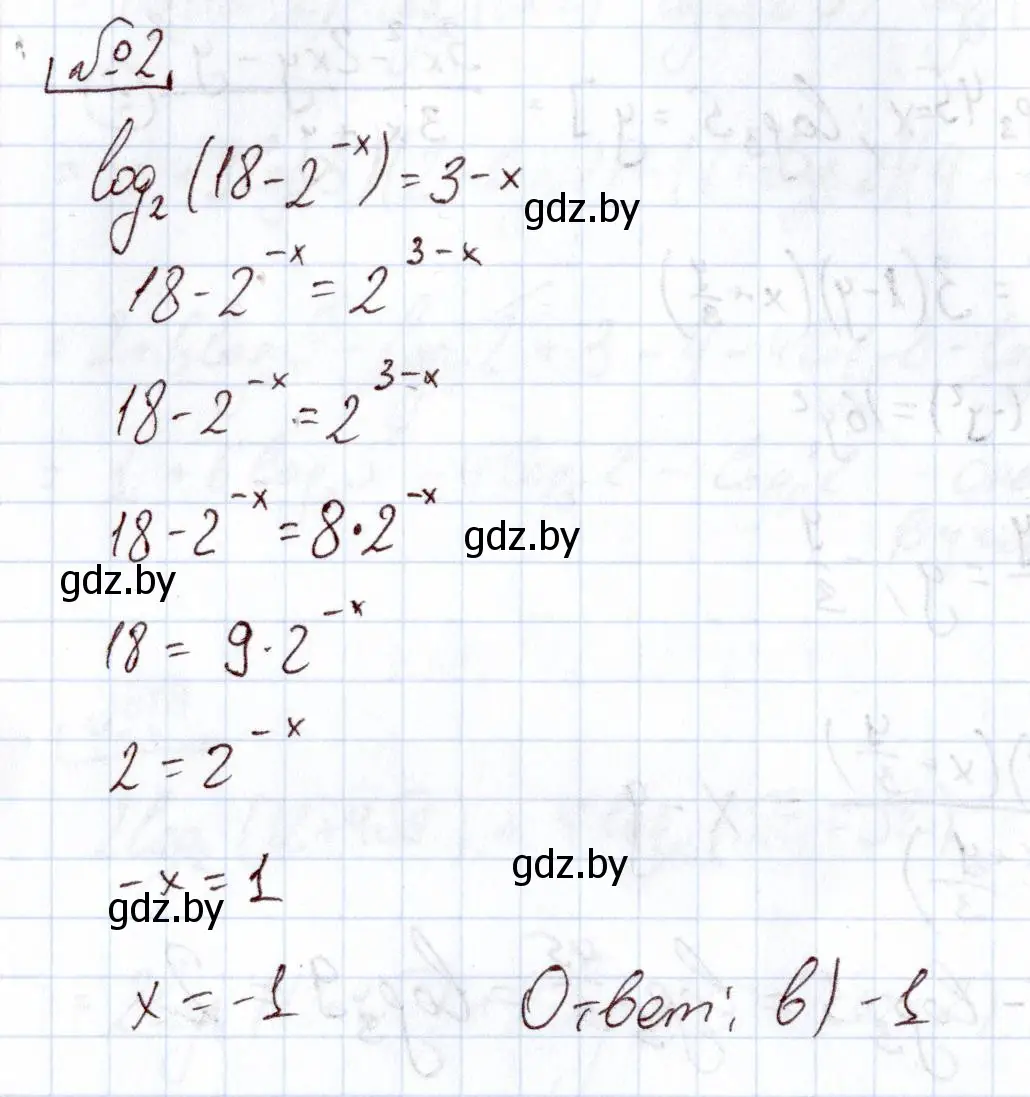 №2
log₂(18-2^{-x})=3-x
gdz.by
18-2^{-x}=2^{3-x}
18-2^{-x}=2^{3-x}
18-2^{-x}=8·2^{-x}
gdz.by
gdz.by
18=9·2^{-x}
2=2^{-x}
-x=1
gdz.by
gdz.by
x=-1 Ответ: в) -1